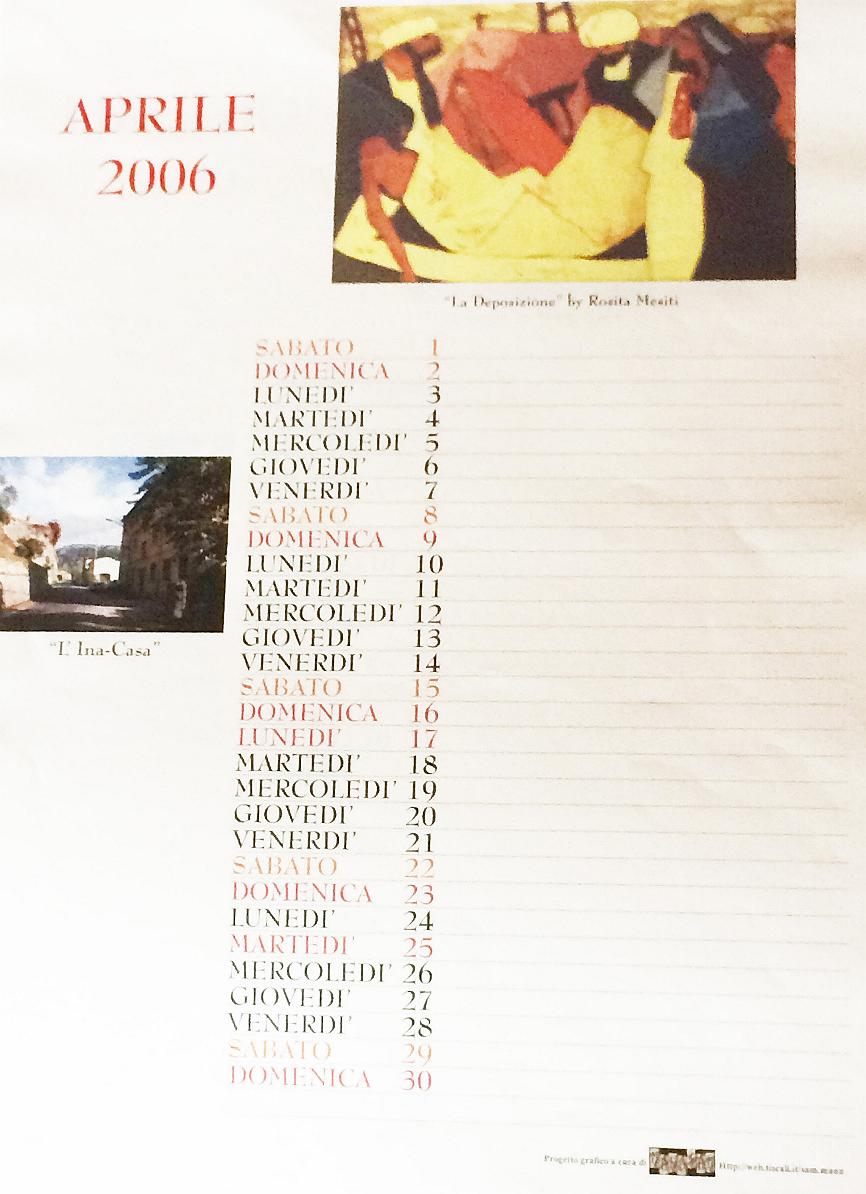 APRILE
2006
"La Deposizione" by Rosita Mesiti
SABATO 1
DOMENICA 2
LUNEDI' 3
MARTEDI' 4
MERCOLEDI' 5
GIOVEDI' 6
VENERDI' 7
SABATO 8
DOMENICA 9
LUNEDI' 10
MARTEDI' 11
MERCOLEDI' 12
GIOVEDI' 13
VENERDI' 14
SABATO 15
DOMENICA 16
LUNEDI' 17
MARTEDI' 18
MERCOLEDI' 19
GIOVEDI' 20
VENERDI' 21
SABATO 22
DOMENICA 23
LUNEDI' 24
MARTEDI' 25
MERCOLEDI' 26
GIOVEDI' 27
VENERDI' 28
SABATO 29
DOMENICA 30
"L' Ina-Casa"
Progetto grafico a cura di